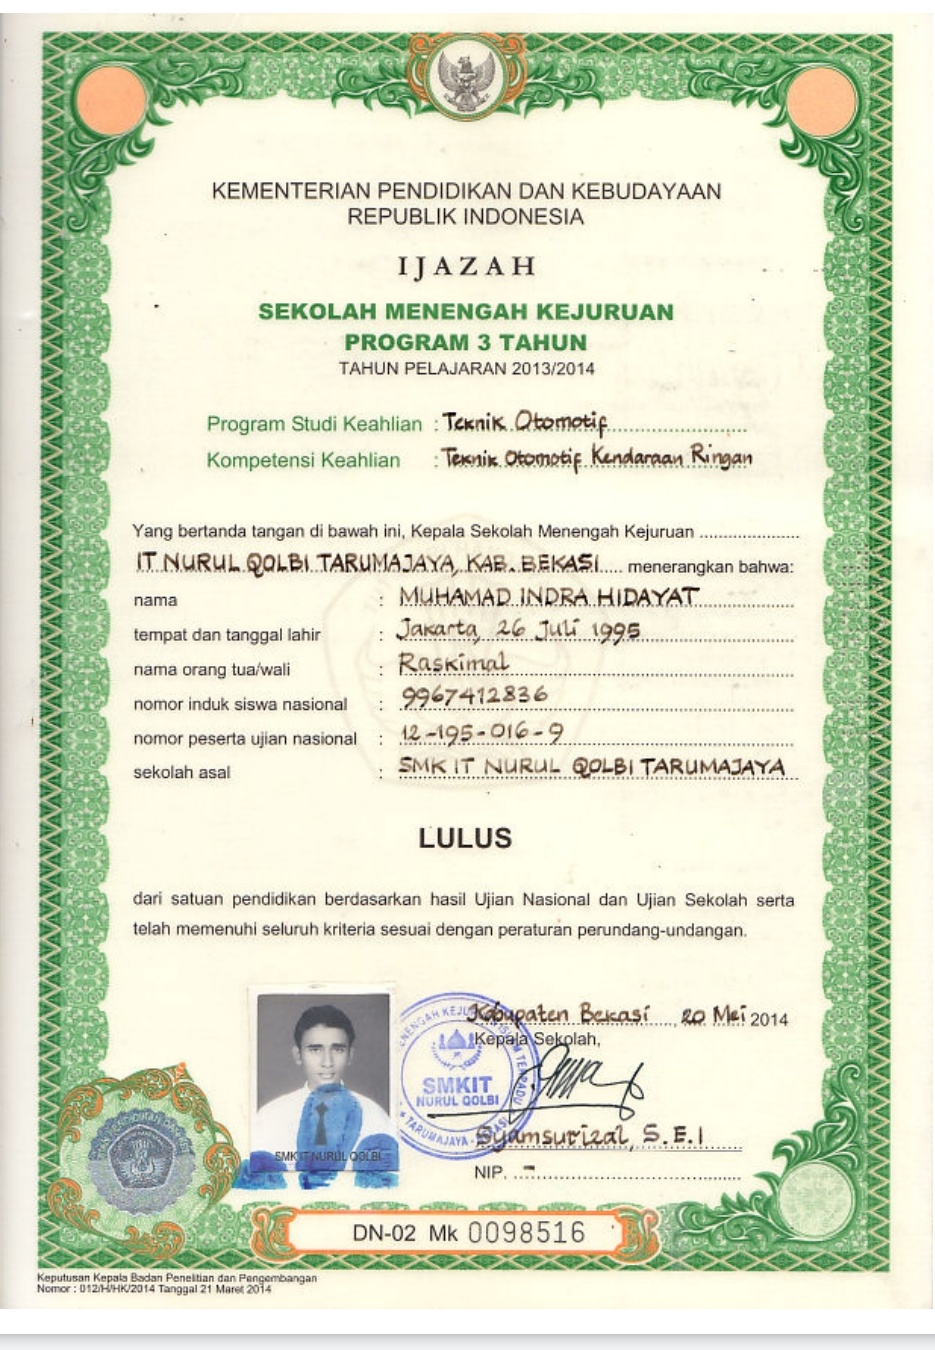 KEMENTERIAN PENDIDIKAN DAN KEBUDAYAAN
REPUBLIK INDONESIA
IJAZAH
SEKOLAH MENENGAH KEJURUAN
PROGRAM 3 TAHUN
TAHUN PELAJARAN 2013/2014
Program Studi Keahlian : Teknik Otomotif
Kompetensi Keahlian : Teknik Otomotif Kendaraan Ringan
Yang bertanda tangan di bawah ini, Kepala Sekolah Menengah Kejuruan ....................
IT NURUL QOLBI TARUMAJAYA, KAB. BEKASI..... menerangkan bahwa:
nama : MUHAMAD INDRA HIDAYAT
tempat dan tanggal lahir : Jakarta, 26 Juli 1995
nama orang tua/wali : Raskimal
nomor induk siswa nasional : 9967412836
nomor peserta ujian nasional : 12-195-016-9
sekolah asal : SMK IT NURUL QOLBI TARUMAJAYA
LULUS
dari satuan pendidikan berdasarkan hasil Ujian Nasional dan Ujian Sekolah serta
telah memenuhi seluruh kriteria sesuai dengan peraturan perundang-undangan.
Kabupaten Bekasi, 20 Mei 2014
Kepala Sekolah,
SMKIT
NURUL QOLBI
TARUMAJAYA - BEKASI
Syamsurizal, S.E.I
SMK IT NURUL QOLBI
NIP. -
DN-02 Mk 0098516
Keputusan Kepala Badan Penelitian dan Pengembangan
Nomor : 012/H/HK/2014 Tanggal 21 Maret 2014